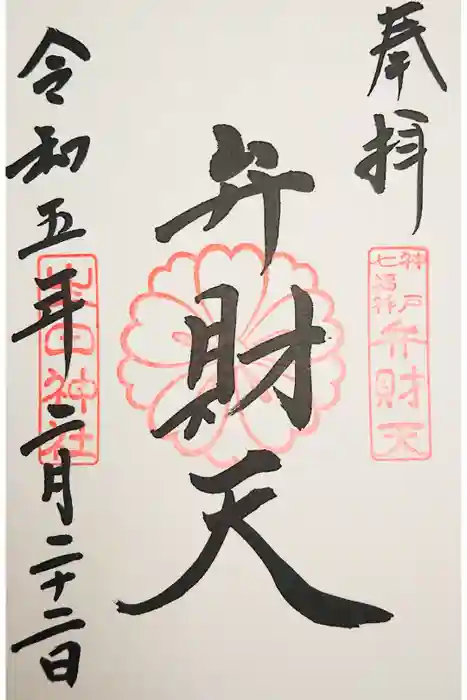 奉拝
神戸
七福神
弁財天
弁財天
令和五年二月二十二日
生田神社